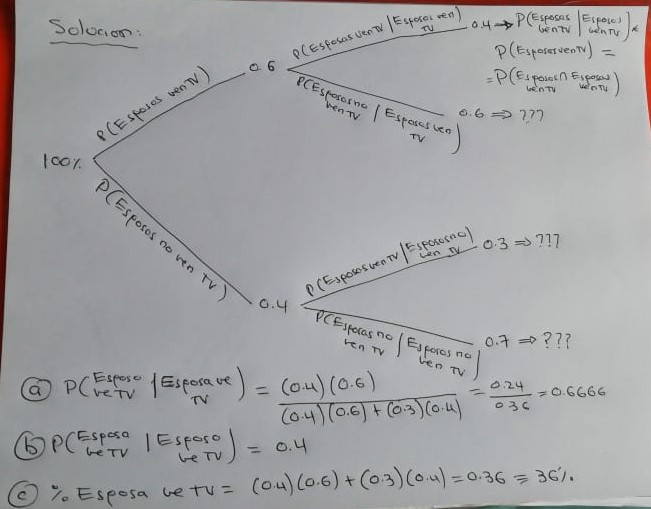 Solucion:
P(Esposos ven TV)
0.6
P(Esposas ven TV | Esposos ven TV)
0.4 → P(Esposas ven TV | Esposos ven TV) *
P(Esposos ven TV) =
= P(Esposos ∩ Esposas
ven TV ven TV)
P(Esposas no ven TV / Esposos ven TV)
0.6 ⇒ ???
100%
P(Esposos no ven TV)
0.4
P(Esposas ven TV | Esposos no ven TV)
0.3 ⇒ ???
P(Esposas no ven TV / Esposos no ven TV)
0.7 ⇒ ???
a) P(Esposo ve TV | Esposa ve TV) = (0.4)(0.6) / (0.4)(0.6) + (0.3)(0.4) = 0.24 / 0.36 = 0.6666
b) P(Esposa ve TV | Esposo ve TV) = 0.4
c) % Esposa ve TV = (0.4)(0.6) + (0.3)(0.4) = 0.36 = 36%.